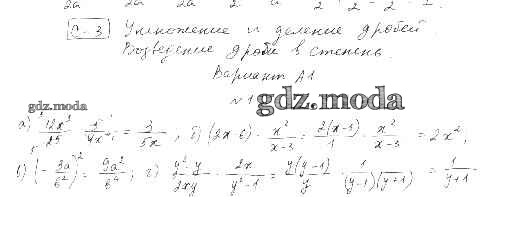 С-3 Умножение и деление дробей.
Возведение дроби в степень.
Вариант А1
№1
gdz.moda
gdz.moda
б) (2x-6) · x²/(x-3) = 2(x-3)/1 · x²/(x-3) = 2x²;
в) (-3a/b²)² = 9a²/b⁴; г) (y²-y)/2xy · 2x/(y²-1) = y(y-1)/y · 1/(y-1)(y+1) = 1/(y+1)